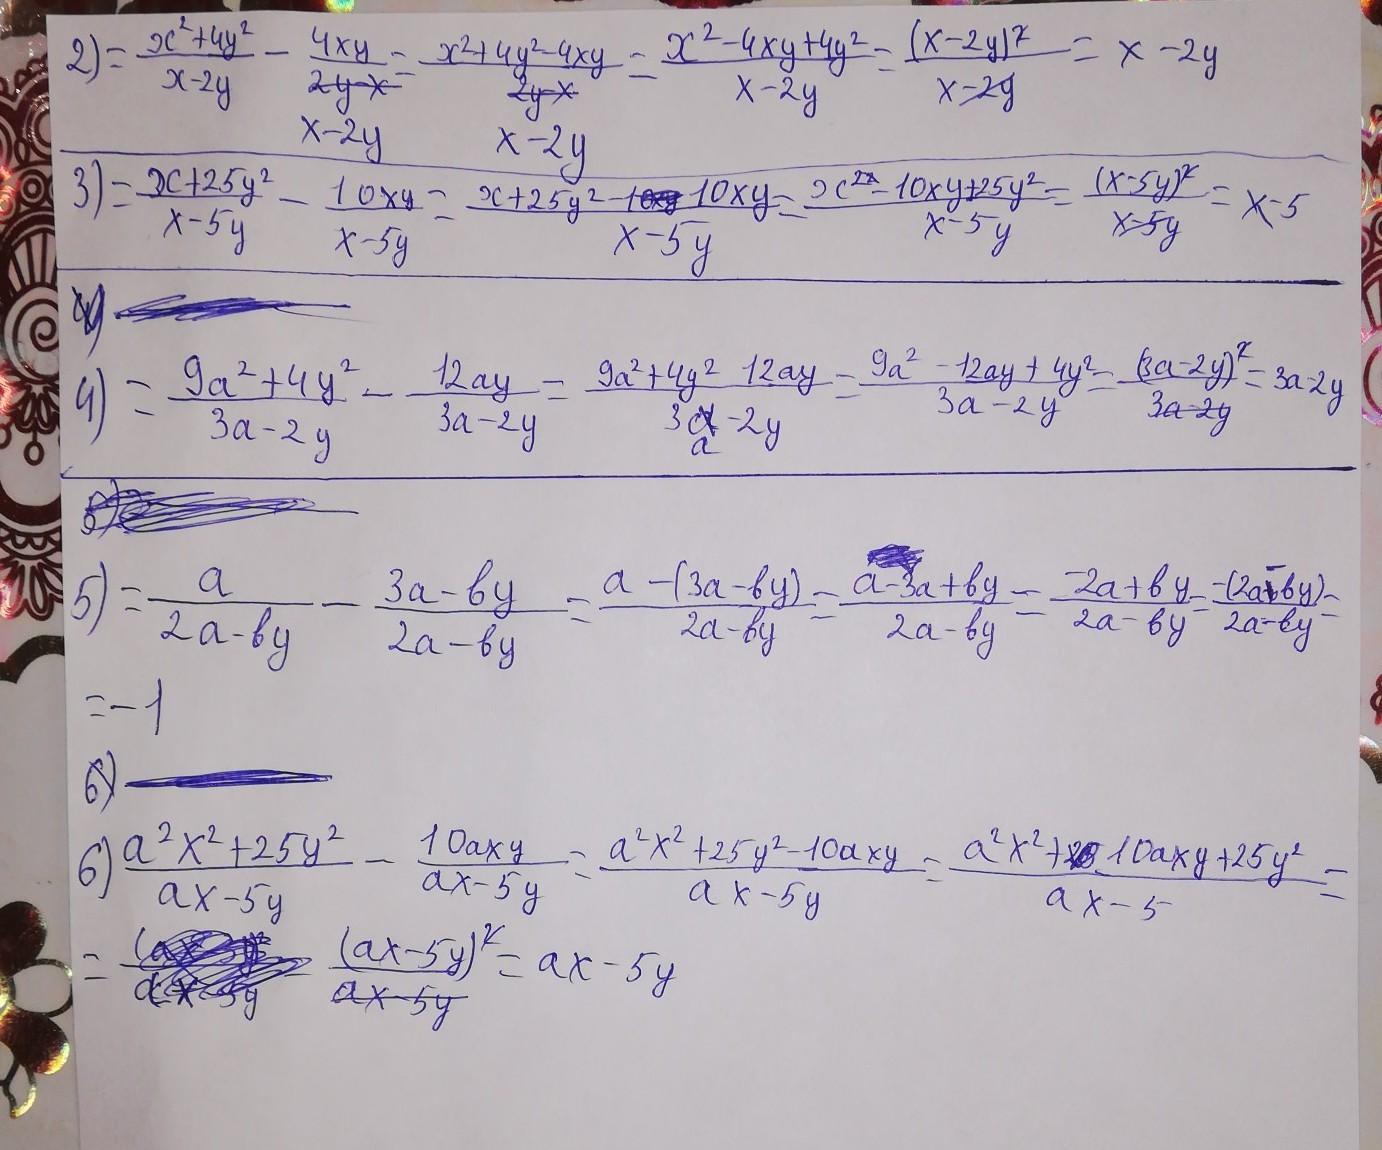 2) = x²+4y²/x-2y - 4xy/x-2y = x²+4y²-4xy/x-2y = x²-4xy+4y²/x-2y = (x-2y)²/x-2y = x-2y
3) = x+25y²/x-5y - 10xy/x-5y = x+25y²-10xy/x-5y = x²-10xy+25y²/x-5y = (x-5y)²/x-5y = x-5
4) = 9a²+4y²/3a-2y - 12ay/3a-2y = 9a²+4y² 12ay/3a-2y = 9a²-12ay+4y²/3a-2y = (3a-2y)²/3a-2y = 3a-2y
5) = a/2a-by - 3a-by/2a-by = a-(3a-by)/2a-by = a-3a+by/2a-by = -2a+by/2a-by = -(2a-by)/2a-by =
= -1
6)
6) a²x²+25y²/ax-5y - 10axy/ax-5y = a²x²+25y²-10axy/ax-5y = a²x²+ 10axy+25y²/ax-5 =
= (ax-5y)²/ax-5y = ax-5y